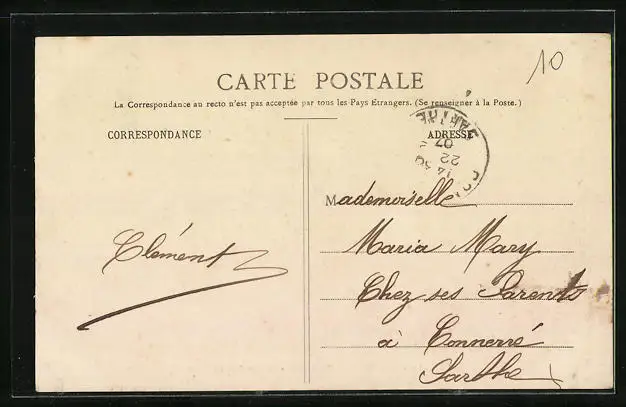 10
CARTE POSTALE
La Correspondance au recto n'est pas acceptée par tous les Pays Etrangers. (Se renseigner à la Poste.)
CORRESPONDANCE
ADRESSE
SARTHE
07
22
14 30
Mademoiselle
Maria Mary
Clément
Chez ses Parents
à Connerré
Sarthe